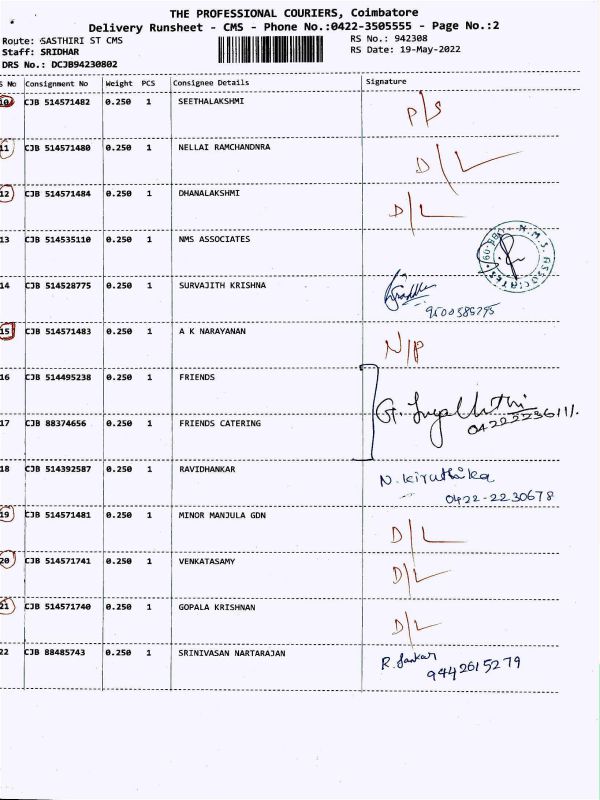 THE PROFESSIONAL COURIERS, Coimbatore
Delivery Runsheet - CMS - Phone No.:0422-3505555 - Page No.:2
Route: SASTHIRI ST CMS RS No.: 942308
Staff: SRIDHAR RS Date: 19-May-2022
DRS No.: DCJB94230802
S No Consignment No Weight PCS Consignee Details Signature
10 CJB 514571482 0.250 1 SEETHALAKSHMI P/S
11 CJB 514571480 0.250 1 NELLAI RAMCHANDNRA D/L
12 CJB 514571484 0.250 1 DHANALAKSHMI D/L
13 CJB 514535110 0.250 1 NMS ASSOCIATES N.M.S. ASSOCIATES
14 CJB 514528775 0.250 1 SURVAJITH KRISHNA
15 CJB 514571483 0.250 1 A K NARAYANAN N/P
16 CJB 514495238 0.250 1 FRIENDS
17 CJB 88374656 0.250 1 FRIENDS CATERING 04222236111.
18 CJB 514392587 0.250 1 RAVIDHANKAR N. Kiruthika
0422-2230678
19 CJB 514571481 0.250 1 MINOR MANJULA GDN D/L
20 CJB 514571741 0.250 1 VENKATASAMY D/L
21 CJB 514571740 0.250 1 GOPALA KRISHNAN D/L
22 CJB 88485743 0.250 1 SRINIVASAN NARTARAJAN R. Sankar
9442615279